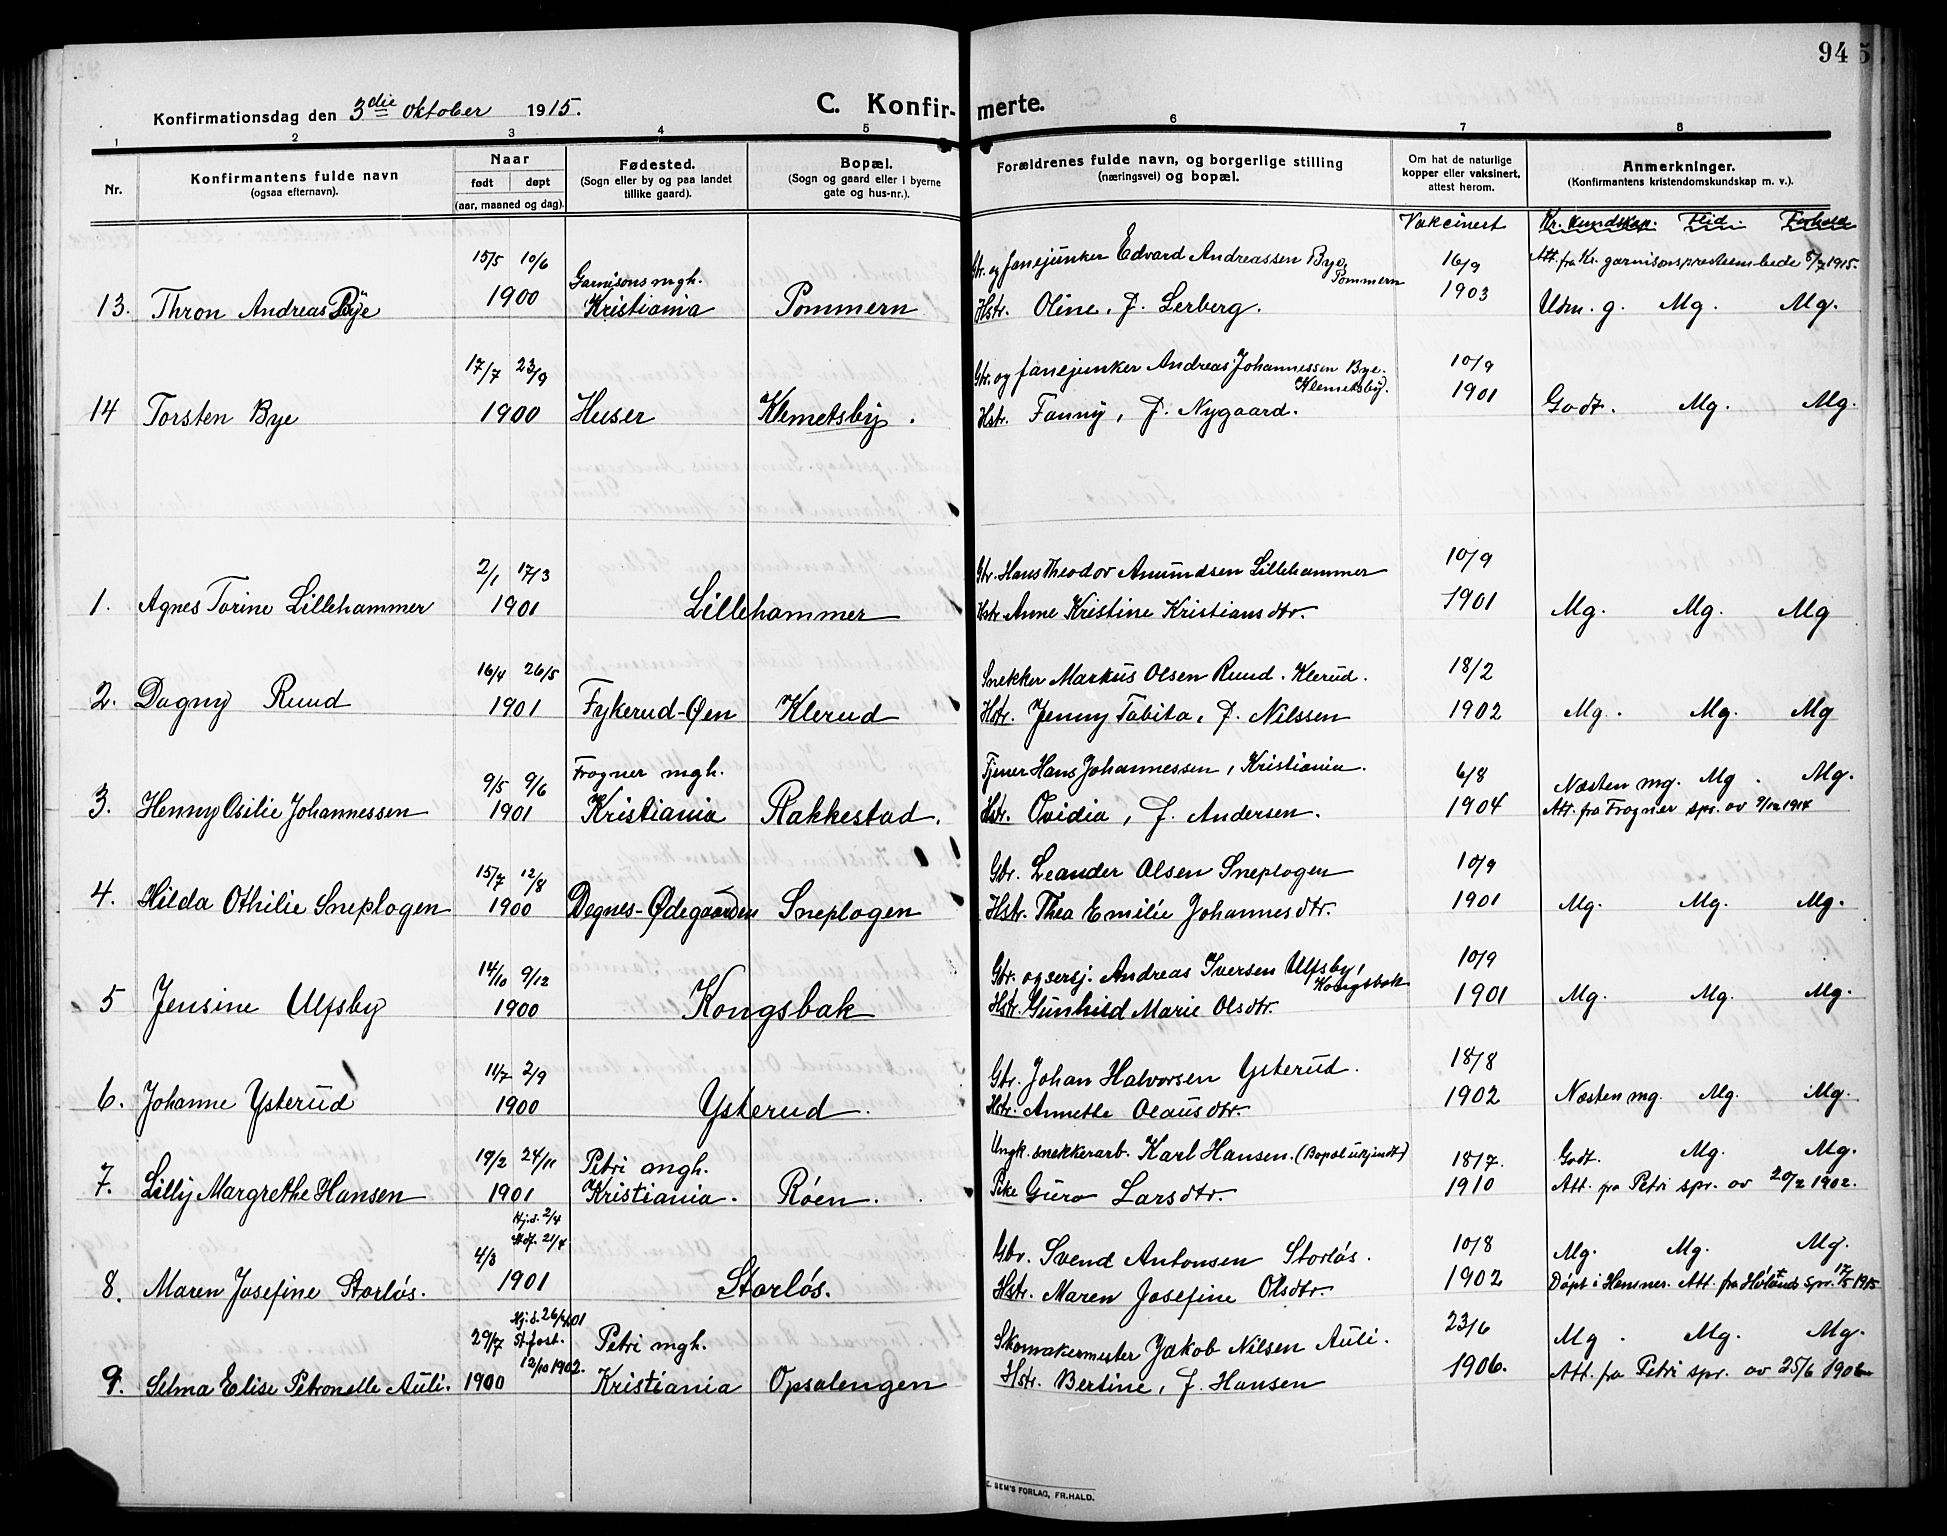 94
Konfirmationsdag den 3die Oktober 1915.
C. Konfir-merte.
1 2 3 4 5 6 7 8
Nr.
Konfirmantens fulde navn
(ogsaa efternavn).
Naar
født døpt
(aar, maaned og dag).
Fødested.
(Sogn eller by og paa landet
tillike gaard).
Bopæl.
(Sogn og gaard eller i byerne
gate og hus-nr.).
Forældrenes fulde navn, og borgerlige stilling
(næringsvei) og bopæl.
Om hat de naturlige
kopper eller vaksinert,
attest herom.
Anmerkninger.
(Konfirmantens kristendomskundskap m. v.).
Vakcinert Kr. kundskap. Flid. Forhold
15/5 10/6 Garnisons mgh. Gbr. og fanejunker Edvard Andreassen Bye, Pommern 16/9 Att. fra Kr. garnisonsprestembede 5/7 1915.
13. Thron Andreas Bye 1900 Kristiania Pommern Hstr. Oline, f. Lerberg. 1903 Udm. g. Mg. Mg.
17/7 23/9 Gbr. og fanejunker Andreas Johannessen Bye. Klemetsby. 10/9
14 Torsten Bye 1900 Huser Klemetsby. Hstr. Fanny, f. Nygaard. 1901 Godt. Mg. Mg.
2/1 17/3 Gbr. Hans Theodor Amundsen Lillehammer 10/9
1. Agnes Torine Lillehammer 1901 Lillehammer Hstr. Anne Kristine Kristiansdtr. 1901 Mg. Mg. Mg
16/4 26/5 Snekker Markus Olsen Ruud. Klerud. 18/2
2. Dagny Ruud 1901 Fykerud-Øen Klerud Hstr. Jenny Tabita, f. Nilssen 1902 Mg. Mg. Mg
9/5 9/6 Frogner mgh. Tjener Hans Johannessen, Kristiania. 6/8 Næsten mg. Mg. Mg.
3. Henny Osilie Johannessen 1901 Kristiania Rakkestad. Hstr. Ovidia, f. Andersen. 1904 Att. fra Frogner spr. av 9/12 1914
15/7 12/8 Gbr. Leander Olsen Sneplogen 10/9
4. Hilda Othilie Sneplogen 1900 Degnes-Ødegaarden Sneplogen Hstr. Thea Emilie Johannesdtr. 1901 Mg. Mg. Mg.
14/10 9/12 Gbr. og sersj. Andreas Iversen Ulfsby, Kongsbak 10/9
5 Jensine Ulfsby 1900 Kongsbak Hstr. Gunhild Marie Olsdtr. 1901 Mg. Mg. Mg.
11/7 2/9 Gbr. Johan Halvorsen Ysterud. 18/8
6. Johanne Ysterud 1900 Ysterud. Hstr. Annette Olausdtr. 1902 Næsten mg. Mg. Mg.
19/2 24/11 Petri mgh. Ungk. snekkerarb. Karl Hansen. (Bopæl ukjendt) 18/7. Godt. Mg. Mg.
7. Lilly Margrethe Hansen 1901 Kristiania. Røen. Pike Guro Larsdtr. 1910 Att. fra Petri spr. av 20/2 1902.
4/3 Hj.d. 2/4 Stdf. 21/4 Gbr. Svend Antonsen Storløs. 10/8 Mg. Mg. Mg.
8. Maren Josefine Storløs. 1901 Storløs. Hstr. Maren Josefine Olsdtr. 1902 Døpt i Hemner. Att. fra Hølands spr. 17/5 1915
29/7 Hj.d. 26/4 01 St.fæst. 12/10 1902. Petri mgh. Skomakermester Jakob Nilsen Auli. 23/6 Mg. Mg. Mg.
9. Selma Elise Petronelle Auli. 1900 Kristiania Opsalengen Hstr. Bertine, f. Hansen 1906. Att. fra Petri spr. av 25/6 1906
E. SEM'S FORLAG, FR.HALD.